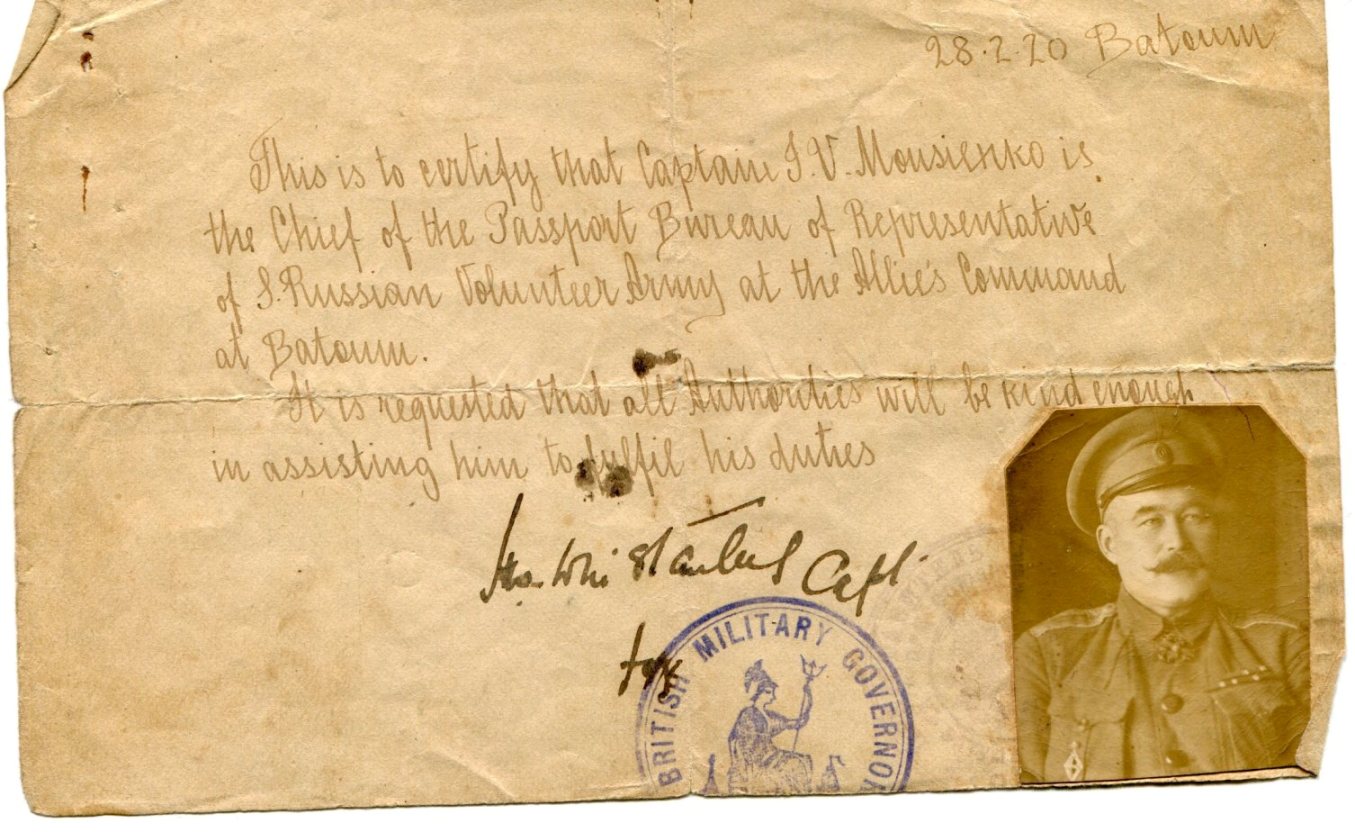 28.2.20 Batoum
This is to certify that Captain I.V. Mousienko is
the Chief of the Passport Bureau of Representative
of S. Russian Volunteer Army at the Allie's Command
at Batoum.
It is requested that all Authorities will be kind enough
in assisting him to fulfil his duties
Capt.
for
BRITISH MILITARY GOVERNOR